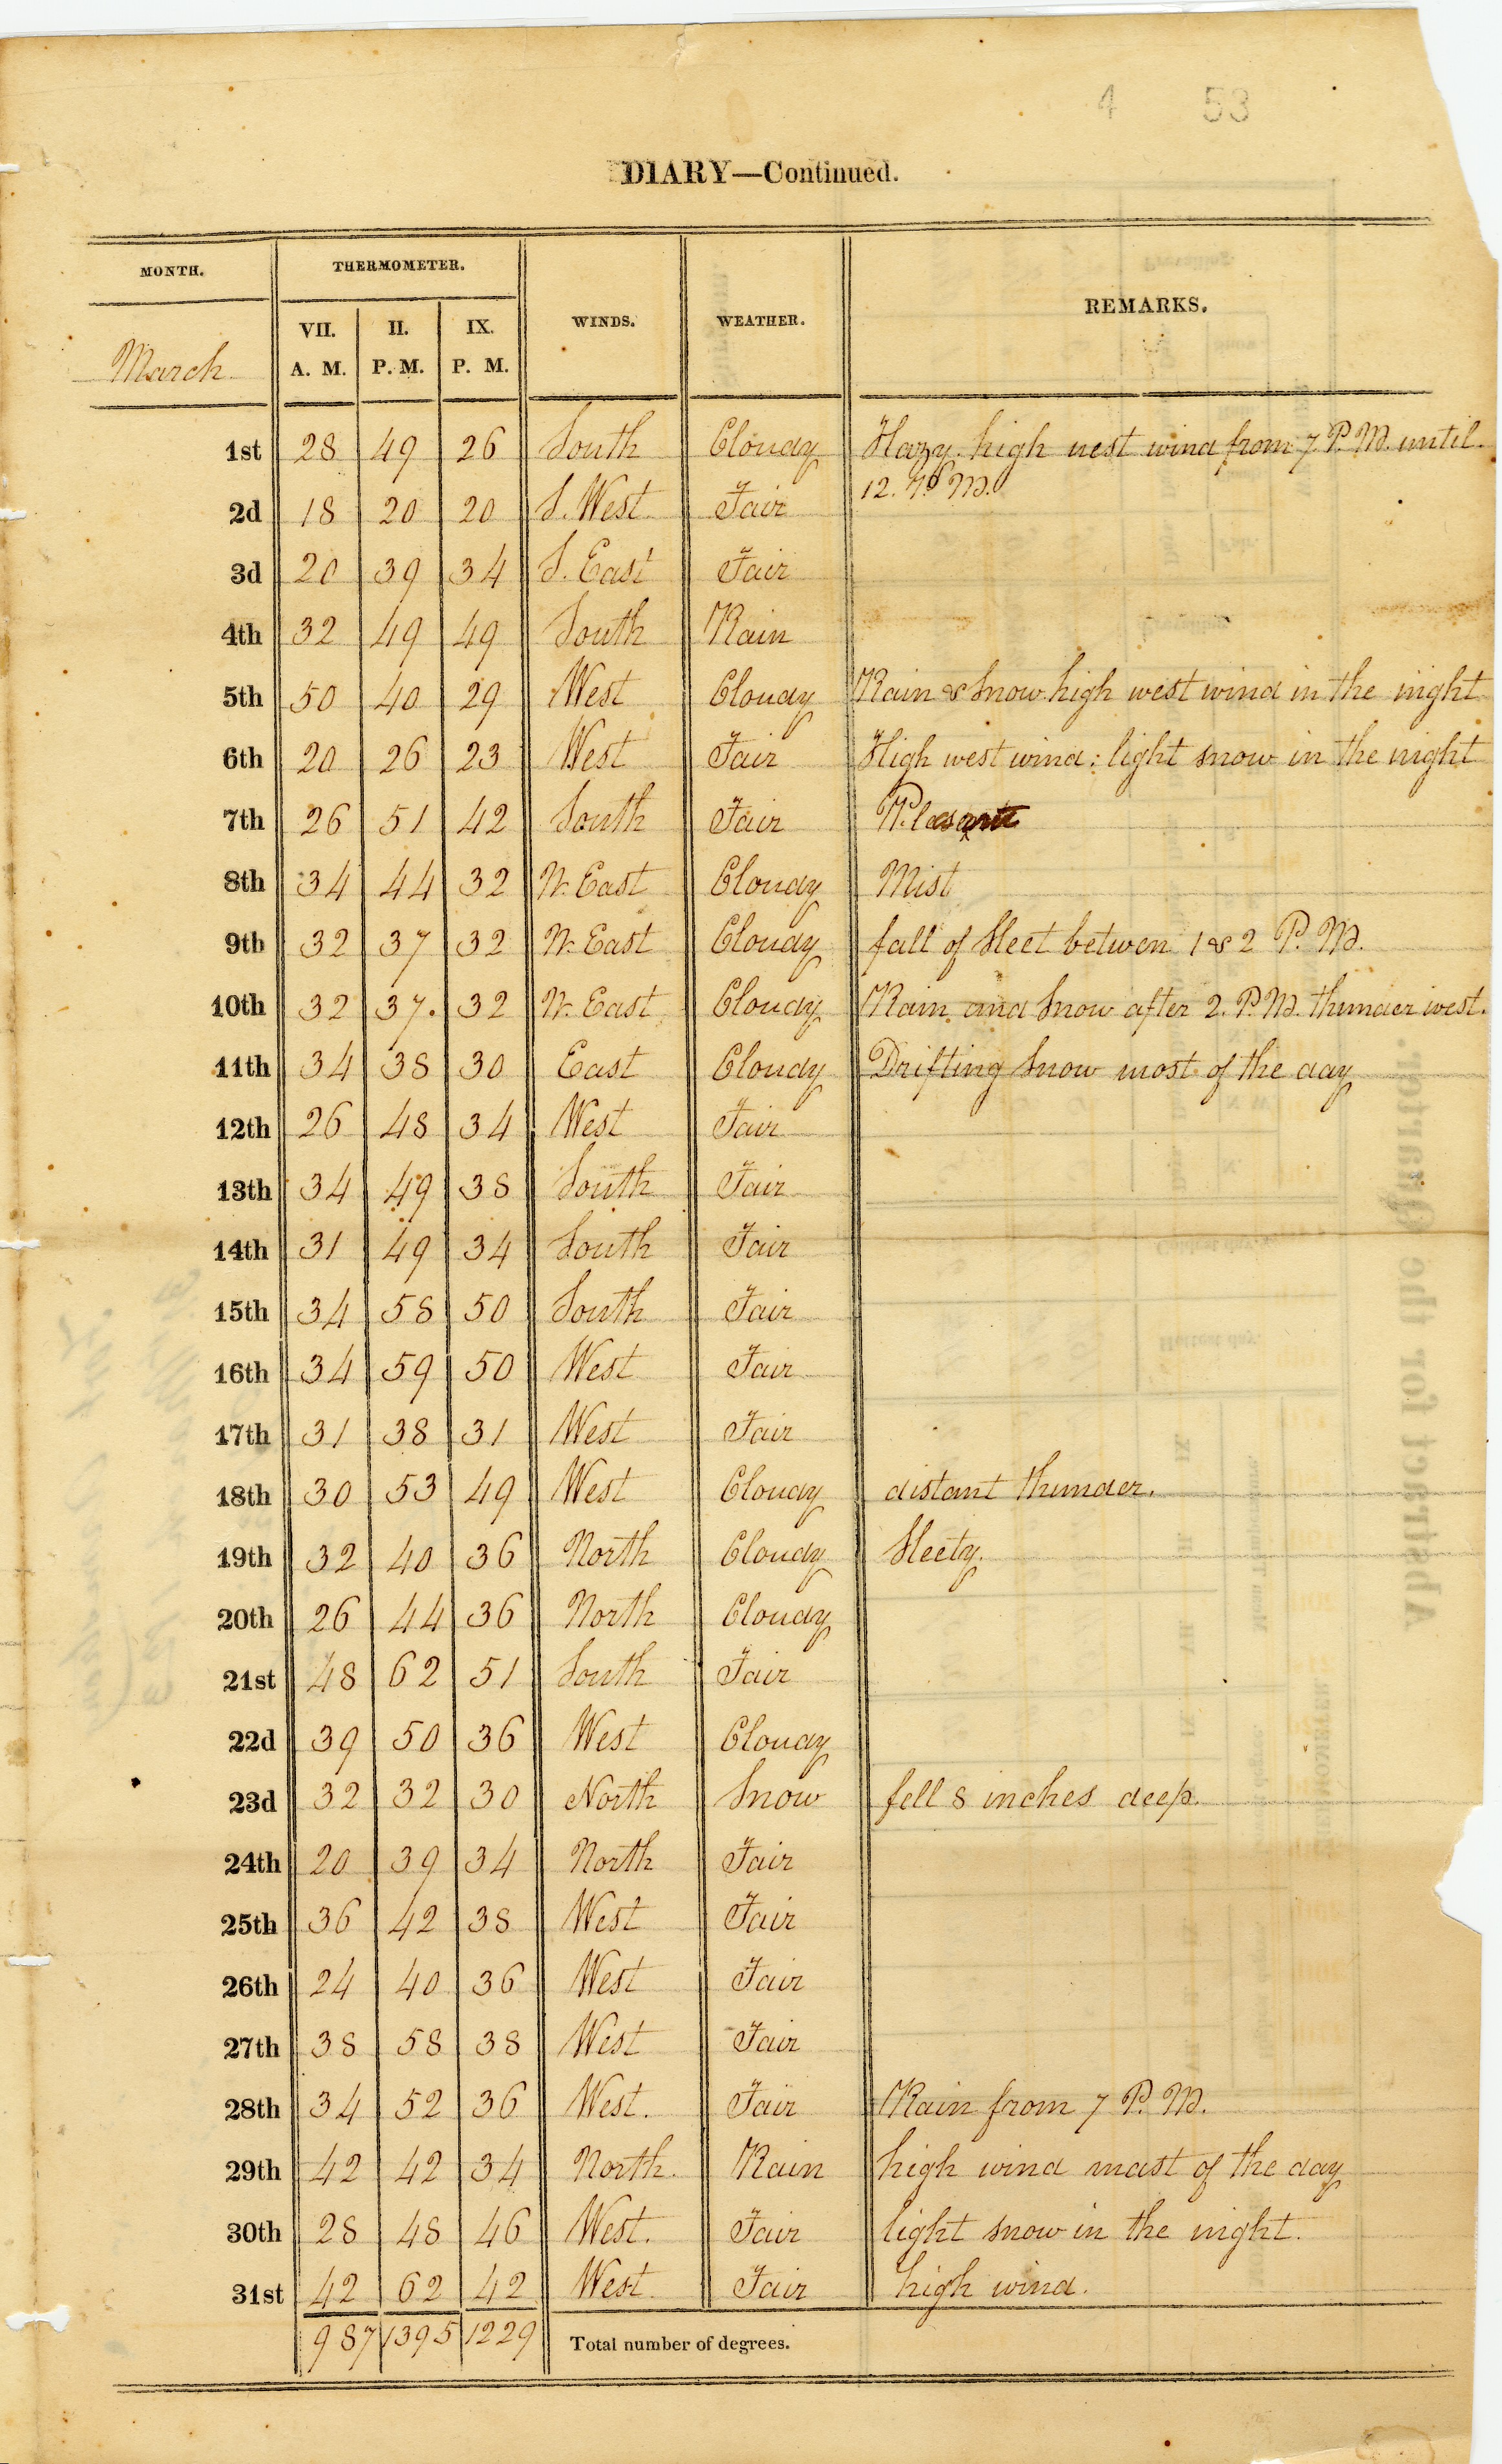 4 53
DIARY—Continued.
MONTH. THERMOMETER. WINDS. WEATHER. REMARKS.
VII. II. IX.
March A. M. P. M. P. M.
1st 28 49 26 South Cloudy Hazy. high west wind from 7 P. M. until
12. P. M.
2d 18 20 20 S. West Fair
3d 20 39 34 S. East Fair
4th 32 49 49 South Rain
5th 50 40 29 West Cloudy Rain & Snow. high west wind in the night
6th 20 26 23 West Fair High west wind: light snow in the night
7th 26 51 42 South Fair Pleasant
8th 34 44 32 N. East Cloudy Mist
9th 32 37 32 N. East Cloudy fall of Sleet betwen 1 & 2 P. M.
10th 32 37. 32 N. East Cloudy Rain and Snow after 2. P. M. thunder west.
11th 34 38 30 East Cloudy Drifting Snow most of the day
12th 26 48 34 West Fair
13th 34 49 38 South Fair
14th 31 49 34 South Fair
15th 34 58 50 South Fair
16th 34 59 50 West Fair
17th 31 38 31 West Fair
18th 30 53 49 West Cloudy distant thunder.
19th 32 40 36 North Cloudy Sleety.
20th 26 44 36 North Cloudy
21st 48 62 51 South Fair
22d 39 50 36 West Cloudy
23d 32 32 30 North Snow fell 8 inches deep.
24th 20 39 34 North Fair
25th 36 42 38 West Fair
26th 24 40 36 West Fair
27th 38 58 38 West Fair
28th 34 52 36 West. Fair Rain from 7 P. M.
29th 42 42 34 North. Rain high wind most of the day
30th 28 48 46 West. Fair light snow in the night.
31st 42 62 42 West. Fair high wind.
987 1395 1229 Total number of degrees.